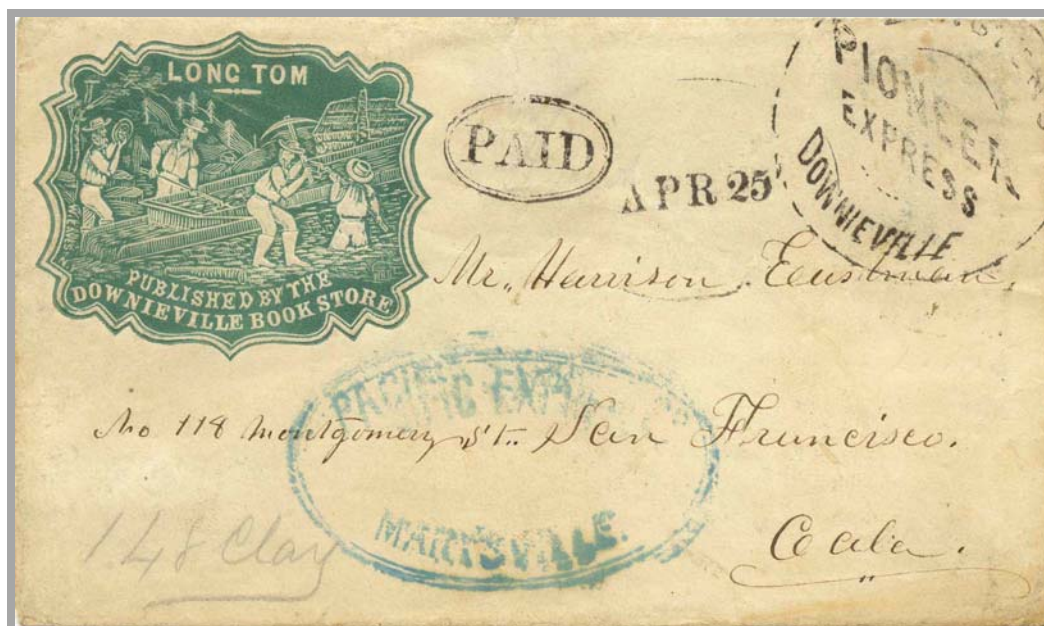 LONG TOM
PUBLISHED BY THE
DOWNIEVILLE BOOK STORE
PAID
APR 25
PIONEER
EXPRESS
DOWNIEVILLE
Mr. Harrison Eastman.
PACIFIC EXPRESS
MARYSVILLE.
No 118 Montgomery St. San Francisco.
Cala.
148 Clay